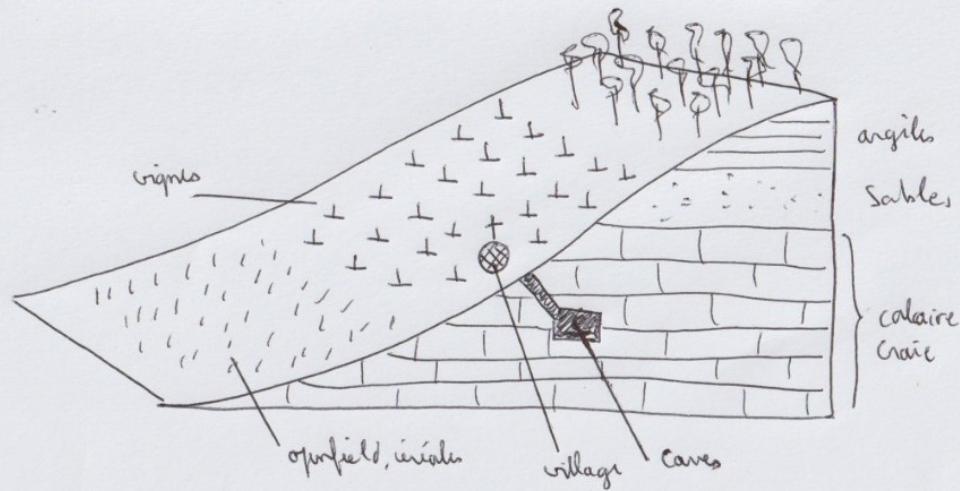 argiles
vignes
Sables
calcaire
Craie
openfield, céréales
village
caves